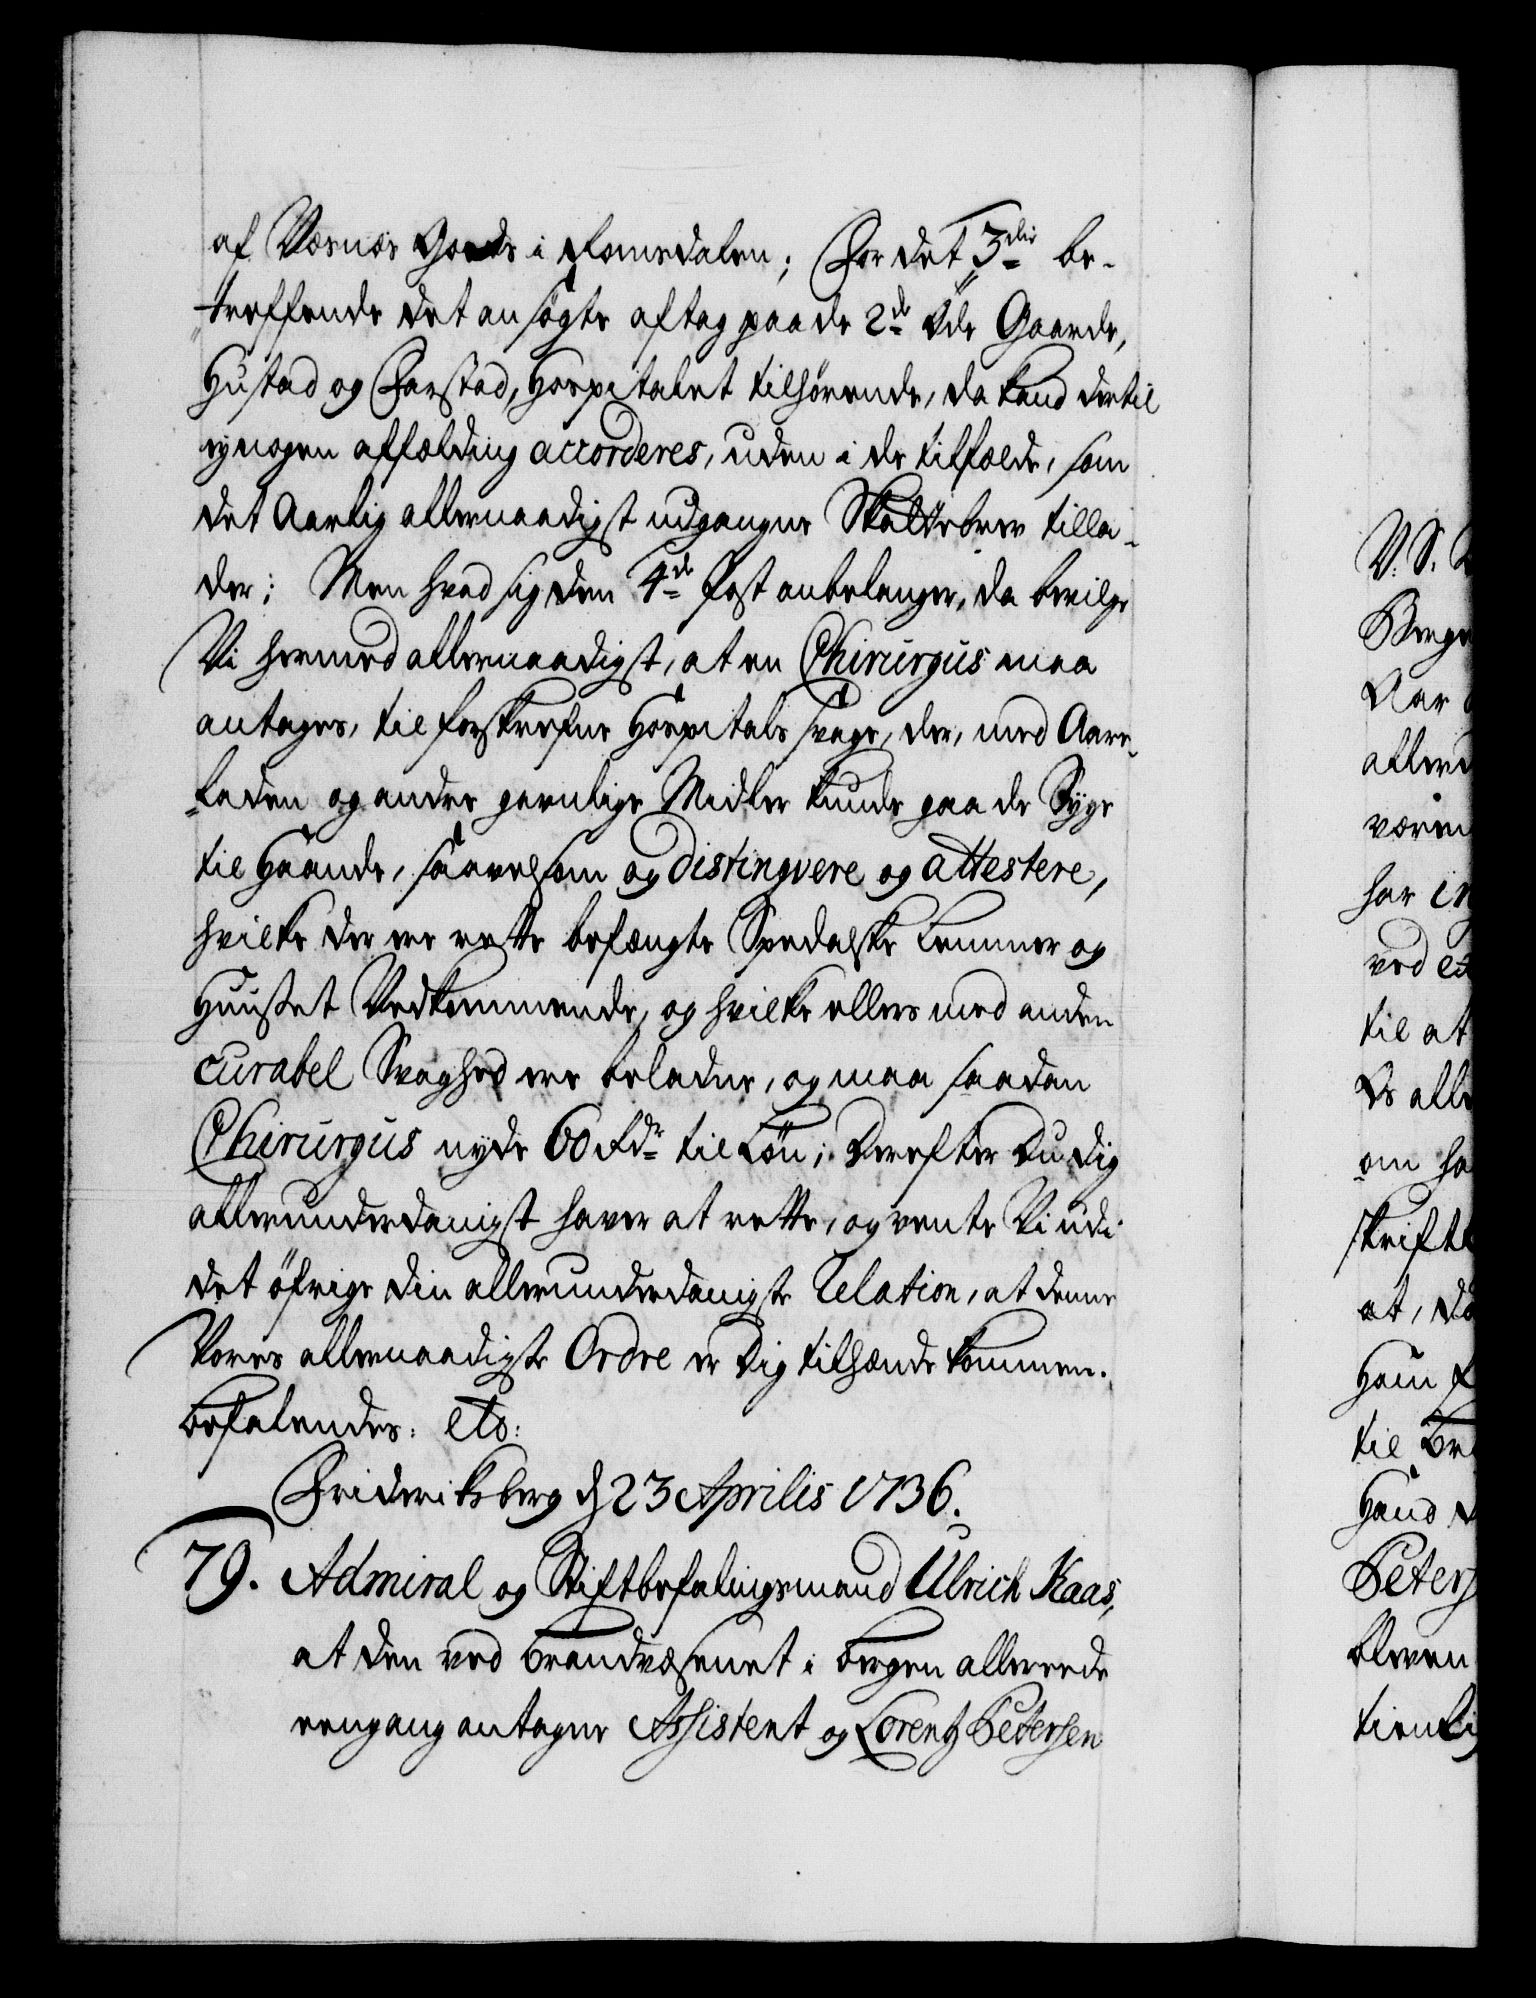 af Væsnæs Gods i Romsdalen; For det 3die be-
treffende det ansøgte aftag paa de 2de Øde Gaarde,
Hustad og Farstad, Hospitalet tilhørende, da kand dertil
ey nogen affælding accorderes, uden i de tilfælde, som
det Aarlig allernaadigst udgangne Skattebrev tilla-
der; Men hvad sig den 4de Post anbelanger, da bevilge
Vi hermed allernaadigst, at en Chirurgus maa
antages, til forskrefne Hospitals svage, der, med Aare-
laden og andre gavnlige Midler kunde gaa de Syge
til Haande, saavelsom og distingvere og attestere,
hvilke der ere rette befængte Spedalske Lemmer og
Huuset Vedkommende, og hvilke ellers med anden
curabel Svaghed ere beladne, og maa saadan
Chirurgus nyde 60 Rdr til Løn; Derefter Du dig
allerunderdanigst haver at rette, og vente Vi udi
det øfrige din allerunderdanigste Relation, at denne
Vores allernaadigste Ordre er Dig tilhænde kommen.
Befalendes: etc:
Friderichsberg d 23 Aprilis 1736.
79. Admiral og Stiftbefalingsmand Ulrich Kaas,
at den ved Brandvæsenet i Bergen allereede
eengang antagne Assistent og Lorentz Petersen
V. S.
Aar
allere
væren
har in
ved et
til at
De alle
om ha
skriftl
at, da
Ham f
til Br
Haand
Peters
bleven
tienlig